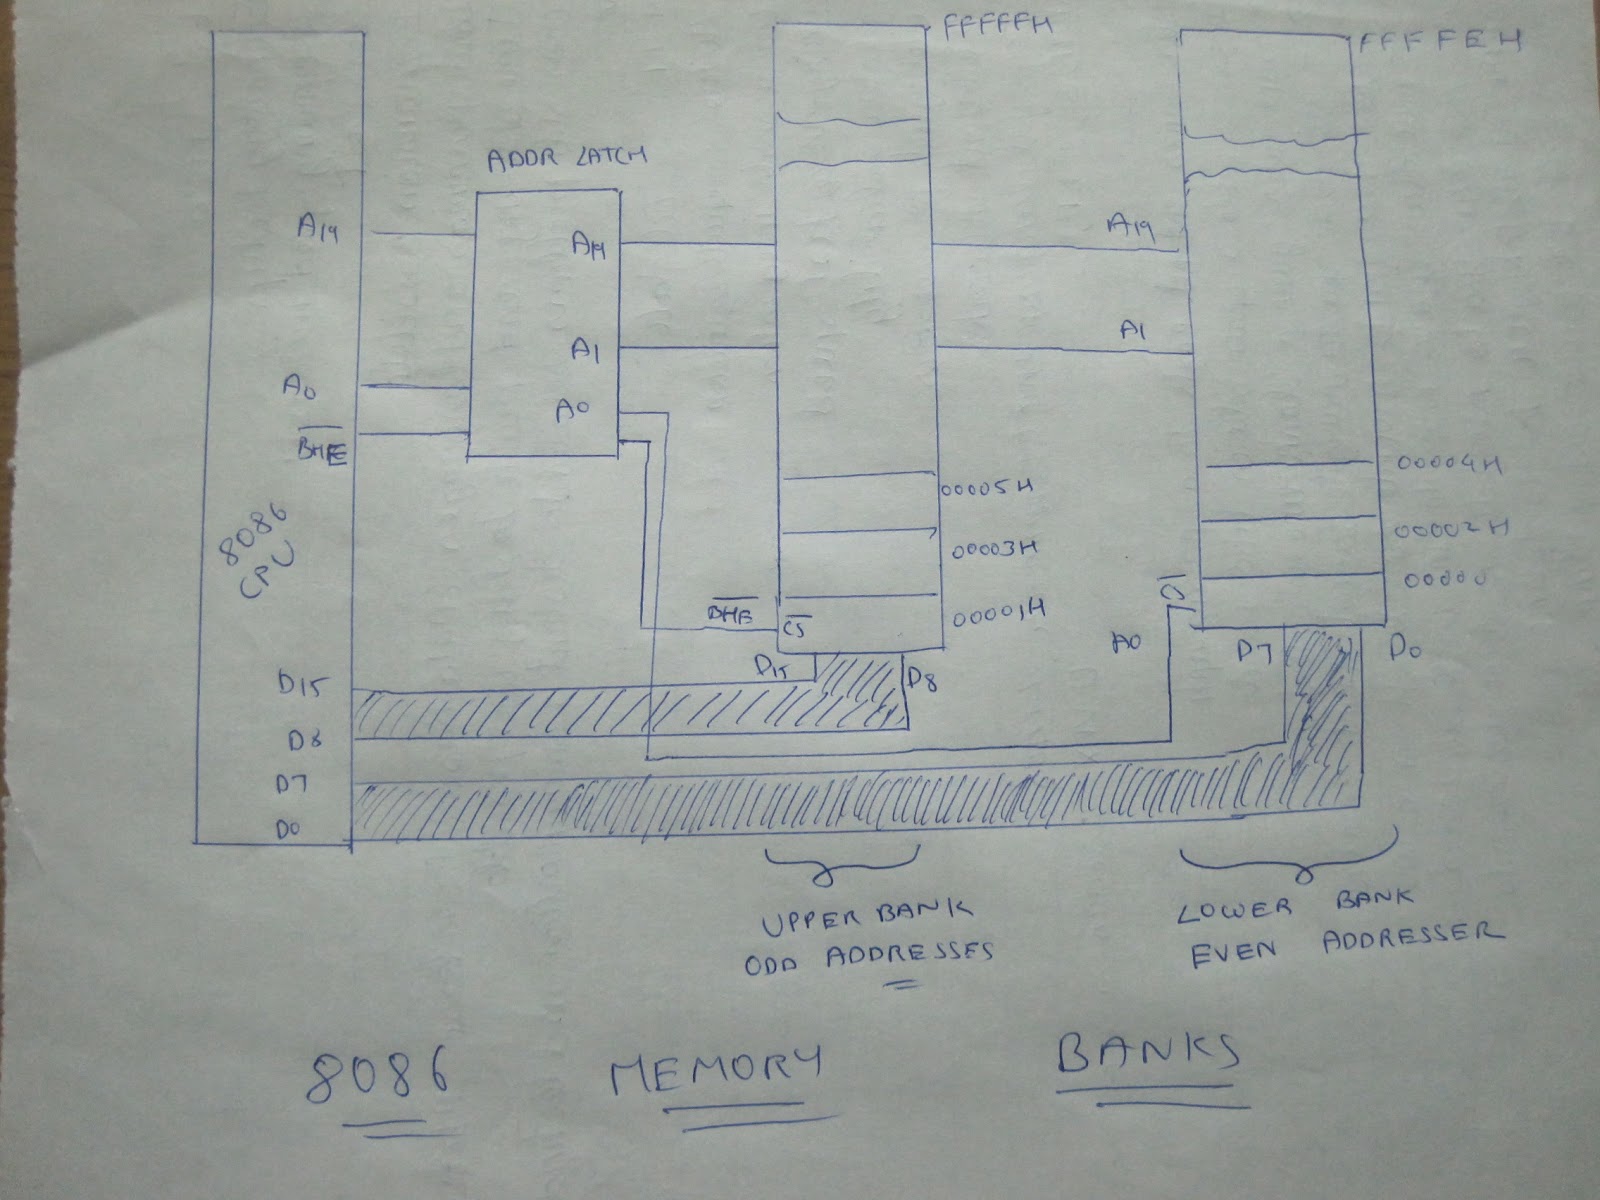 FFFFFH
FFFFEH
ADDR LATCH
A19
A19
A19
A1
A1
A0
A0
BHE
8086
CPU
00005H
00003H
00001H
00004H
00002H
00000
BHE
CS
CS
A0
D15
D8
D7
D0
D15
D8
D7
D0
UPPER BANK
ODD ADDRESSES
LOWER BANK
EVEN ADDRESSER
8086 MEMORY BANKS